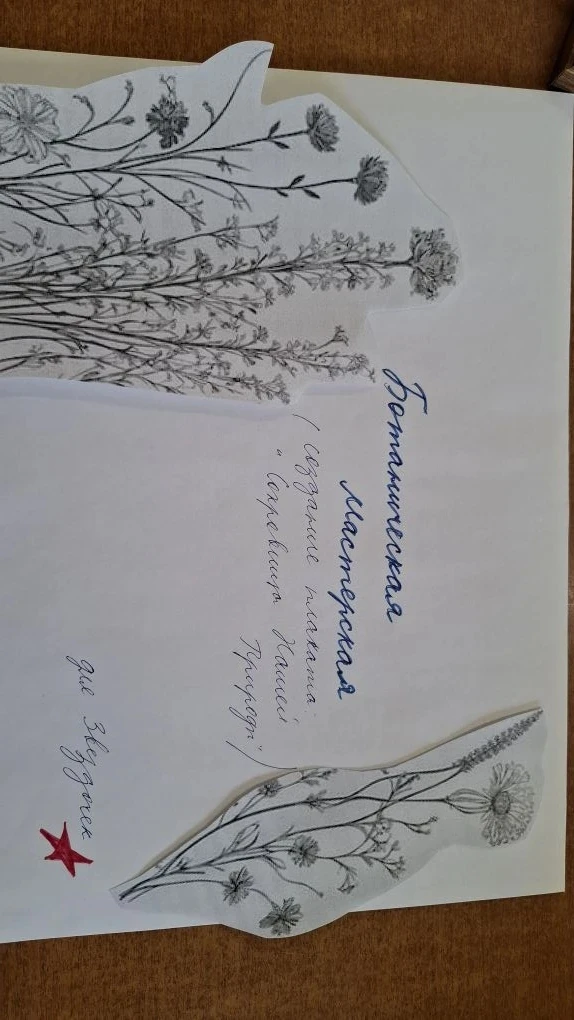 Ботаническая
мастерская
(создание плаката:
"Сокровища Нашей
Природы")
для Звездочек